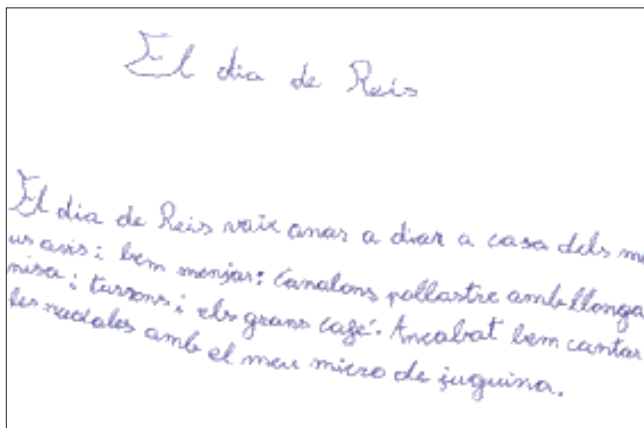 El dia de Reis
El dia de Reis vaix anar a dinar a casa dels me
us avis i bem menjar: Canalons pollastre amb llonga
nisa i turrons i els grans café. Ancabat bem cantar
les nadales amb el meu micro de juguina.